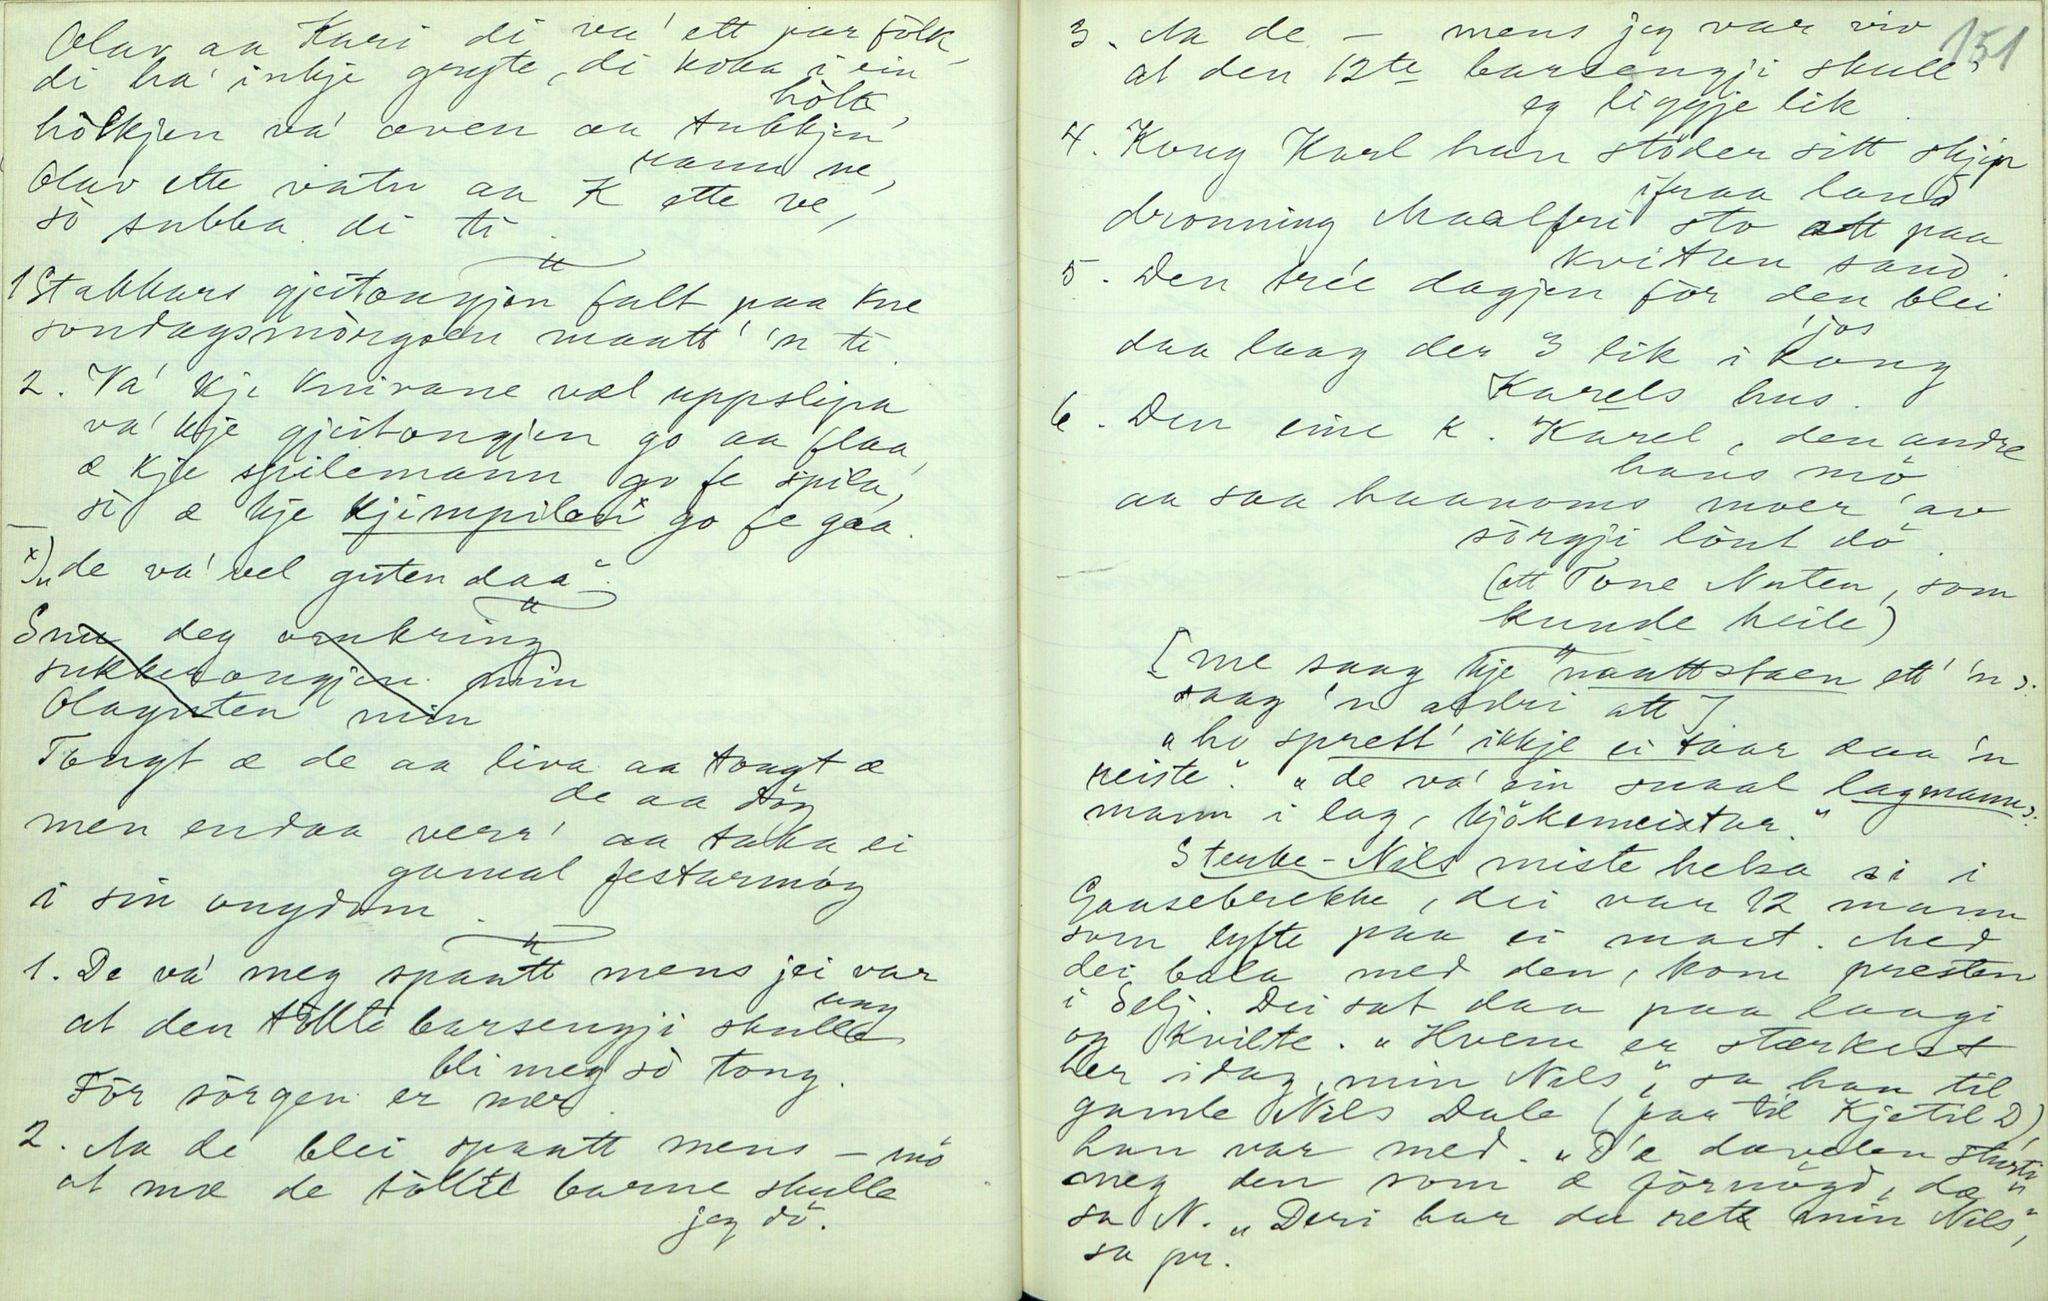 Olav aa Kari di va' ett par fólk
di ha' inkje gryte, di koka i ein
hólk,
hólkjen va' oven aa tukkjen
rann ne,
Olav ette vatn aa K ette ve,
só subba di ti.
1 Stakkars gjeitongjen falt paa kne
sondagsmórgoen maatt' 'n te.
2. Va' kje knivane væl uppslipa
va' kje gjeitongjen go aa flaa,
æ kje spilemann go fe spila,
så æ kje kjimpilasi x go fe gaa.
x) „de va' vel guten daa".
Snu deg omkring
sukkerongjen min
Olaguten min
Tongt æ de aa liva aa tongt æ
de aa döy
men endaa verr' aa taka ei
gamal festarmøy
i sin ongdom.
1. De va' meg spaatt mens jei var
ung
at den tóllte barsengji skulle
bli meg só tong.
Fór sórgen er nær.
2. Aa de blei spaatt mens – mö
at mæ de tóllte barne skulle
jeg dö.
151
3. Aa de – mens jeg var viv
at den 12te barsengji skull'
eg liggje lik.
4. Kong Karl han stöder sitt skjip
ifraa land
dronning Maalfri sto att paa
kvitan sand.
5. Den trée dagjen fór den blei
'jos
daa laag der 3 lik i kong
Karels hus.
6. Den eine k. Karel, den andre
hans mö
aa saa haanoms moer 'av
sórgji lönt dö.
(ett Tone Nuten, som
kunde heile)
[me saag kje naattstaen ett' 'n ɔ:
saag 'n aldri att].
„ho sprett' ikkje ei taar daa 'n
reiste". „de va' ein snaal lagmann ɔ:
mann i lag, kjökemeistar."
Sterke-Nils miste helsa si i
Gaasebrekke, dei var 12 mann
som lyfte paa ei mast. Med
dei bala med den, kom presten
i Selj. Dei sat daa paa laagi
og kvilte. „Hvem er stærkest
her idag, min Nils", sa han til
gamle Nils Dale (faa til Kjetil D)
han var med. „D'æ dævelen sturti
meg den som æ fórnögd, dæ"
sa N. „Deri har du rett min Nils",
sa pr.